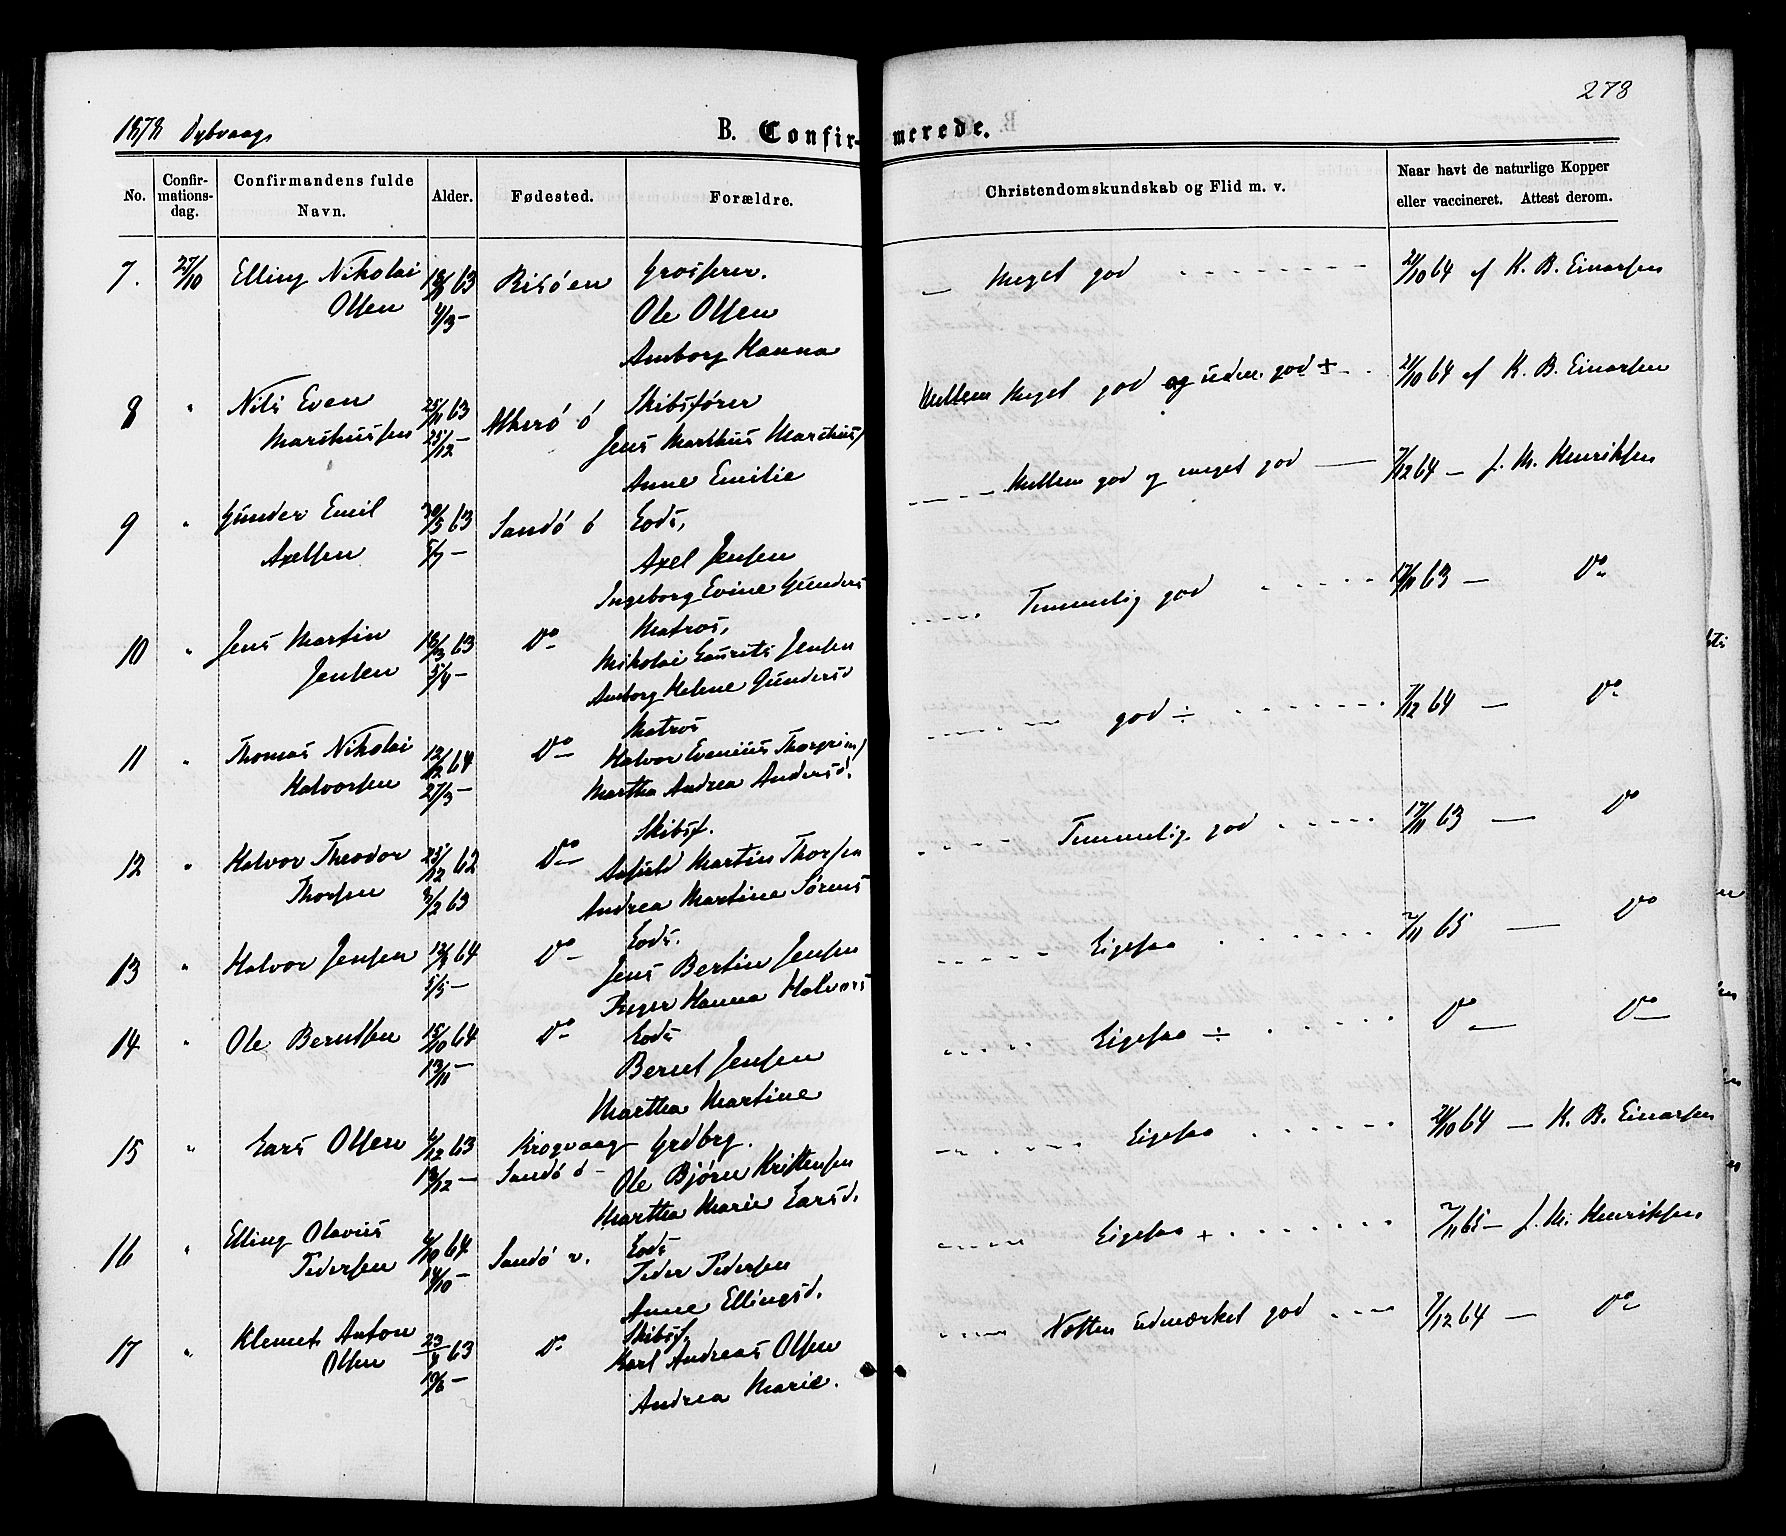 278
1878 Dybvaag
B. Confirmerede.
No.
Confirmationsdag.
Confirmandens fulde Navn.
Alder.
Fødested.
Forældre.
Christendomskundskab og Flid m. v.
Naar havt de naturlige Kopper eller vaccineret. Attest derom.
7. 27/10 Elling Nikolai 63 Risøen Grosserer. Meget god 21/10 64 af K. B. Einarsen
Olsen 4/3 – Ole Olsen
Amborg Hanna
8 " Nils Even 25/11 63 ö Skibsfører Mellem Meget god og uden. god + 21/10 64 af K. B. Einarsen
Marthusen 25/12 – Jens Marthus Marthus/
Anne Emilie
9 " Gunder Emil 63 Sandö ö Eods, Mellem god og meget god 7/12 64 – J. M. Henriksen
Axelsen 5/7 – Axel Jensen
Ingeborg Evine Gunders
10 " Jens Martin 18/3 63 Do Matros, Temmelig god 17/11 63 – Do
Jensen 5/4 – Nikolai Laurits Jensen
Amborg Helene Gundersd
11 " Thomas Nikolai 12/12 64 Do Matros god ÷ 7/12 64 – Do
Halvorsen 27/3 – Halvor Evenius Thorgrim/
Martha Andrea Andersd.
12 " Halvor Theodor 25/12 62 Do Skibsf. Temmelig god 17/11 63 – Do
Thorsen 3/2 63 Martin Thorsen
Andrea Martine Sørens
13 " Halvor Jensen 12/3 64 Do Eods. Ligesaa 2/11 65 – Do
5/5 – Jens Bertin Jensen
Inger Hanna Halvors
14 " Ole Berntsen 15/10 64 Do Eods Ligesaa ÷ Do – Do
13/11 – Bernt Jensen
Martha Martine
15 " Lars Olsen 6/12 63 Krogvaag Grdbrg. Ligesaa 21/10 64 – K. B. Einarsen
13/12 – Sandö ö – Ole Bjørn Kristensen
Martha Marie Larsd.
16 " Elling Olavus 6/10 64 Sandö v. Eods Ligesaa + 2/11 65 – J. M. Henriksen
Pedersen 14/10 – Peder Pedersen
Anne Ellingsd.
17 " Klemet Anton 23/4 63 Do Skibsf. Næsten udmærket god 7/12 64 – Do
Olsen – Karl Andreas Olsen
Andrea Marie.